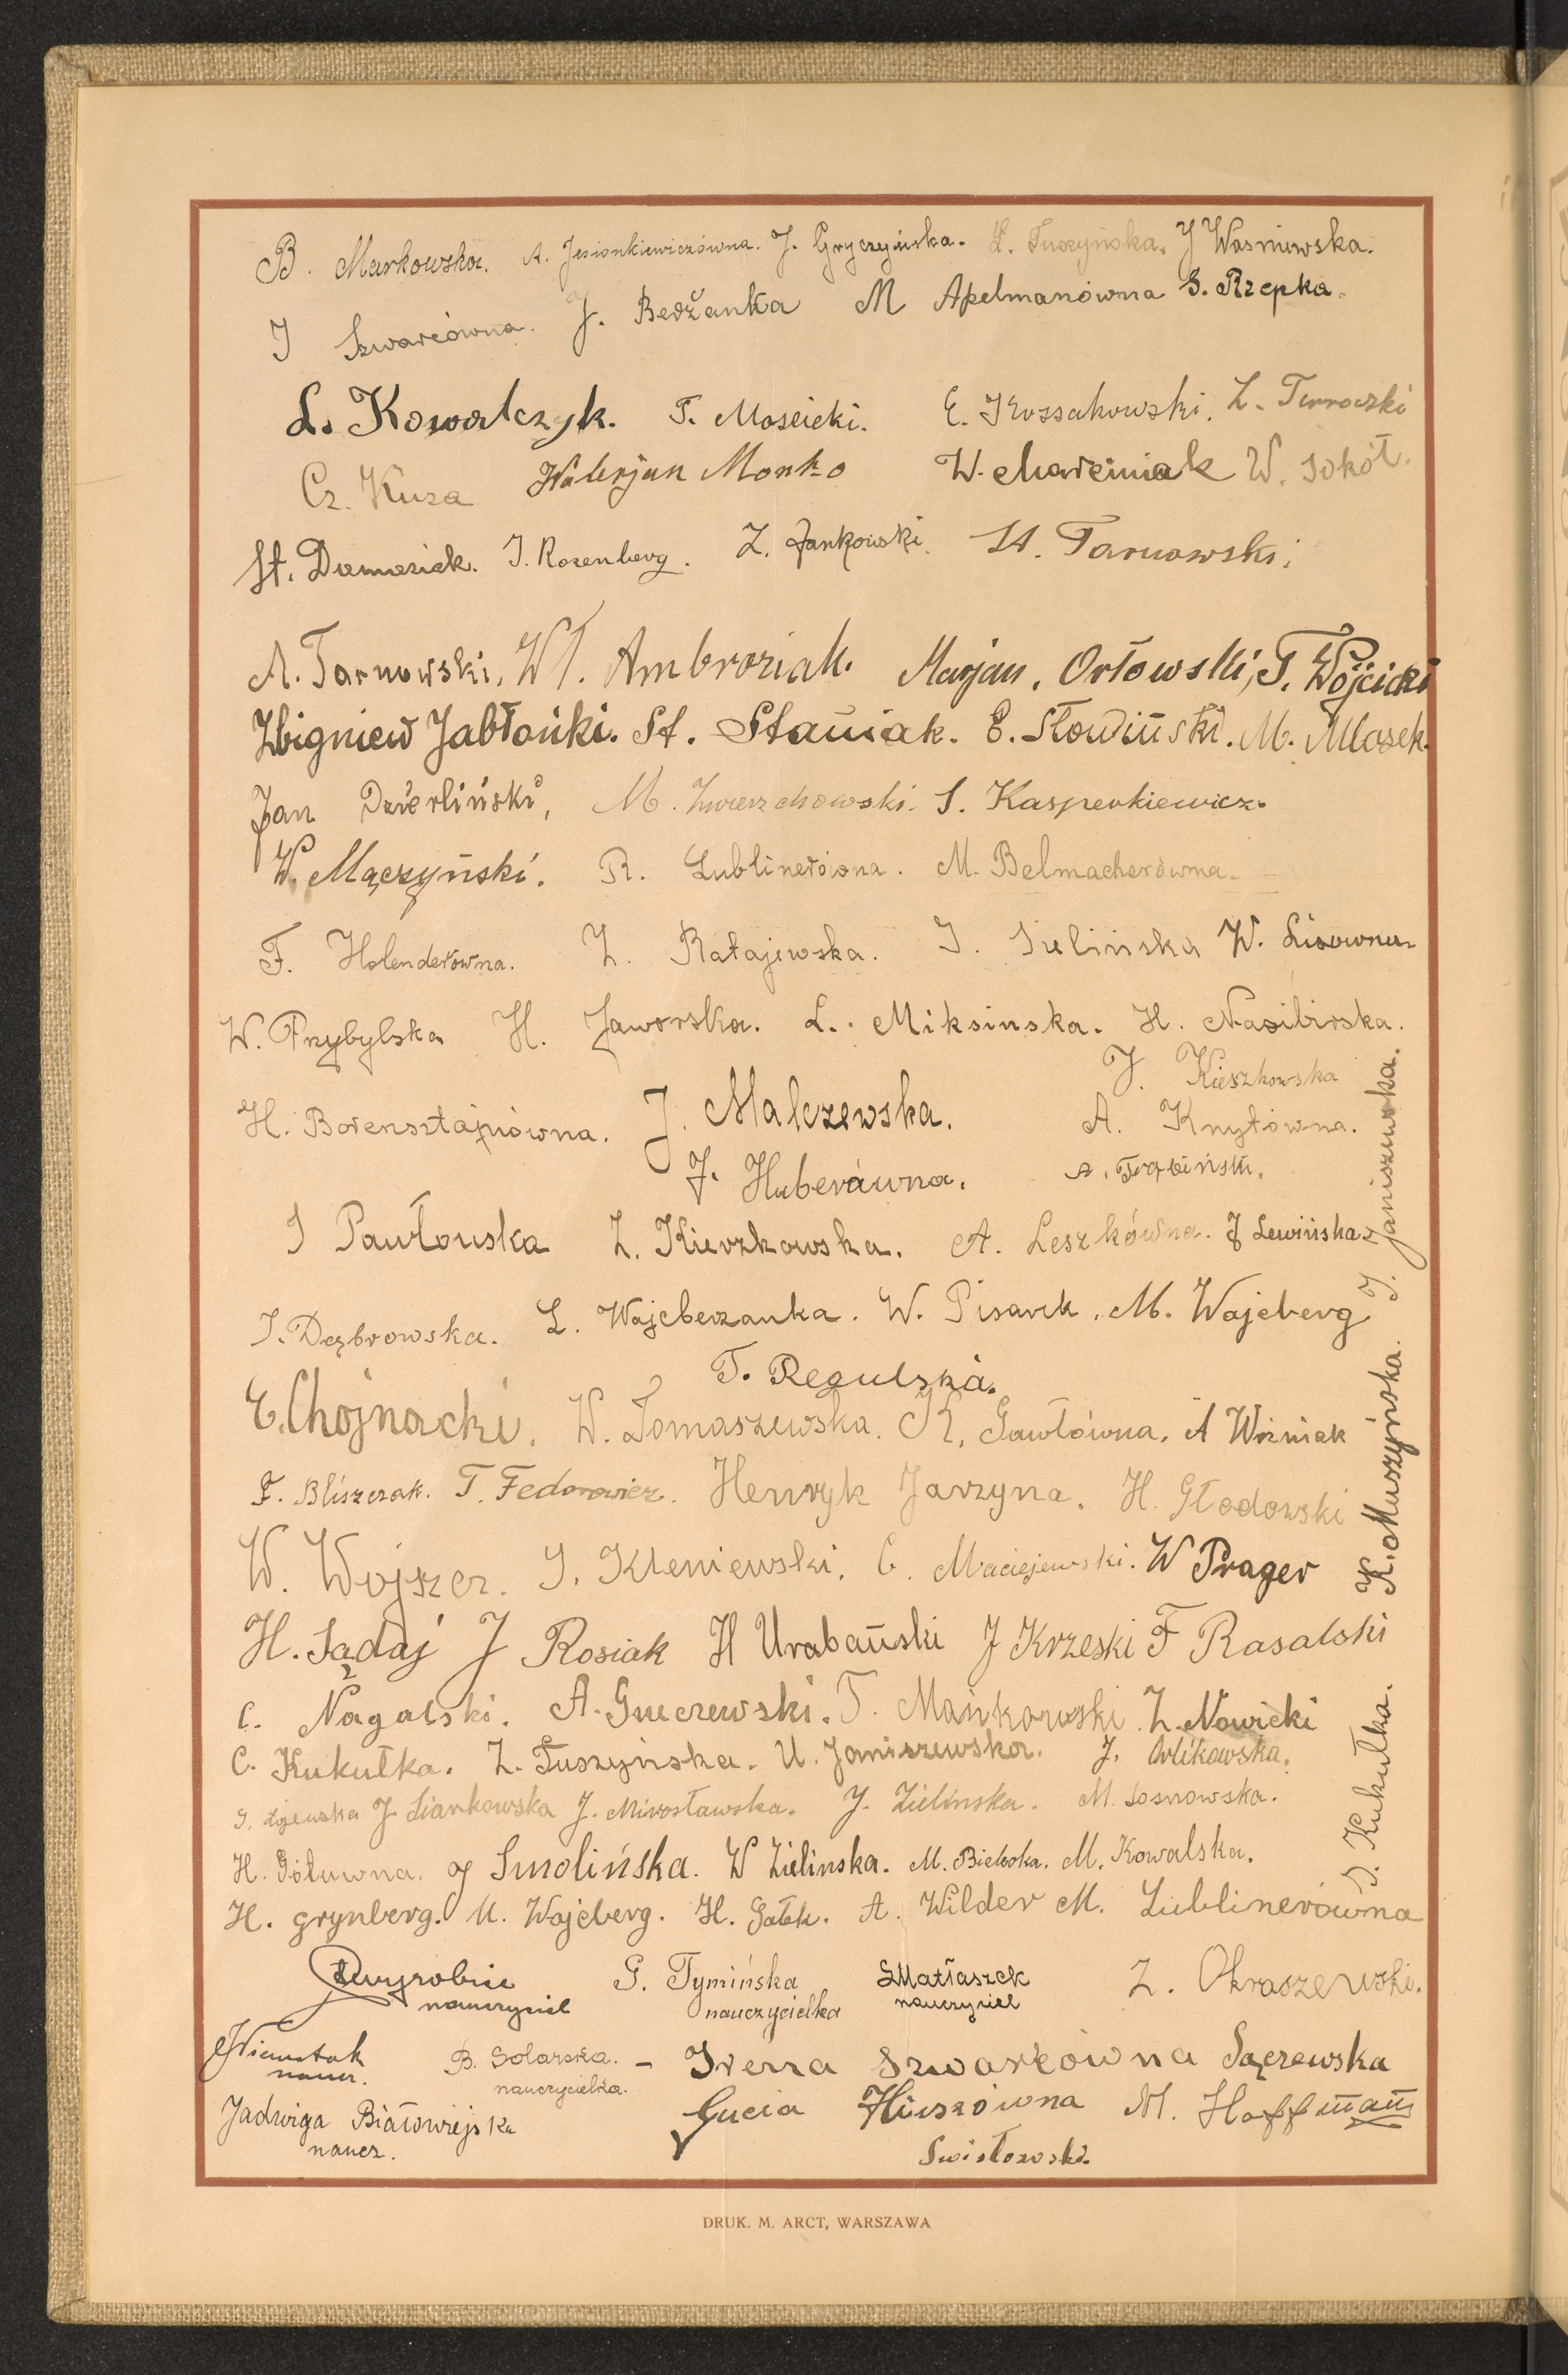 B. Markowska. A. Jesionkiewiczówna. J. Gryczyńska. L. Tuszyńska. J Waśniewska.
I Szwarcówna. J. Bedżanka M Apelmanówna S. Rzepka.
L. Kowalczyk. T. Mościcki. E. Kossakowski. Z. Turowski
Cz. Kuza Walerjan Monko W. Marciniak W. Sokół.
St. Damasiek. I. Rozenberg. Z. Jankowski. St. Tarnowski.
A. Tarnowski. Wł. Ambroziak. Marjan. Orłowski, T. Wójcicki
Zbigniew Jabłoński. St. Staniak. E. Słowiński. M. Mlosek.
Jan Dzierliński, M. Zwierzchowski. S. Kasperkiewicz.
W. Mączyński. R. Lublinerówna. M. Belmacherówna.
F. Holenderówna. Z. Ratajewska. I. Sulińska W. Lisowna
W. Przybylska H. Jaworska. L. Miksinska. H. Nasibirska.
J. Kieszkowska
H. Borensztajnówna. J. Malczewska. A. Knytówna.
J. Huberówna. A. Trąbińsk.
I Pawłowska Z. Kierzkowska. A. Leszkówna. J Lewińska.
I. Janiszewska.
I. Dąbrowska. L. Wajcberzanka. W. Pisarek. M. Wajcberg
T. Regulska.
E. Chojnacki. W. Tomaszewska. K. Gawłówna. A Woźniak
K. Muszyńska.
F. Bliszczak. T. Fedorowicz. Henryk Jarzyna. H. Głodowski
W. Wojszcz. S. Kleniewski. C. Maciejewski. W Prager
H. Sądaj J Rosiak H Urabański J Krzeski F Rasalski
C. Nagalski. A. Guczewski. T. Mańkowski. Z. Nowicki
C. Kukułka. Z. Tuszyńska. U. Janiszewska. J. Orlikowska.
I. Kukułka.
J. Siankowska J. Mirosławska. J. Zielinska. M. Sosnowska.
H. Gólówna. J Smolińska. W Zielinska. M. Bielska. M. Kowalska.
H. Grynberg. M. Wajcberg. H. Gałek. A. Wilder M. Lublinerówna
nauczyciel
G. Tymińska
nauczycielka
S Matłaszek
nauczyciel
Z. Okraszewski.
naucz.
B. Solarska.
nauczycielka.
Irena Szwarcówna Sączewska
Jadwiga Białowiejska
naucz.
Gucia Hirszówna M. Hoffman
Swisłowski.
DRUK. M. ARCT, WARSZAWA